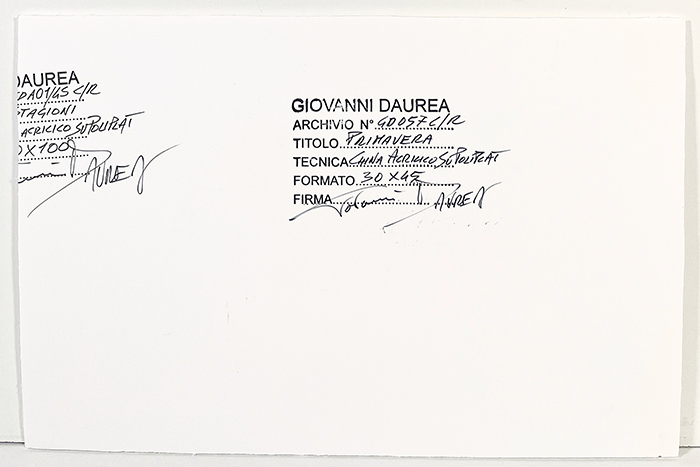 DAUREA
DA01/4S C/R
STAGIONI
ACRICICO SU POLIPLAT
X100
DAUREA
GIOVANNI DAUREA
ARCHIVIO N° GD057C/R
TITOLO PRIMAVERA
TECNICA CHINA ACRICICO SU POLIPLAT
FORMATO 30 X 45
FIRMA Giovanni DAUREA